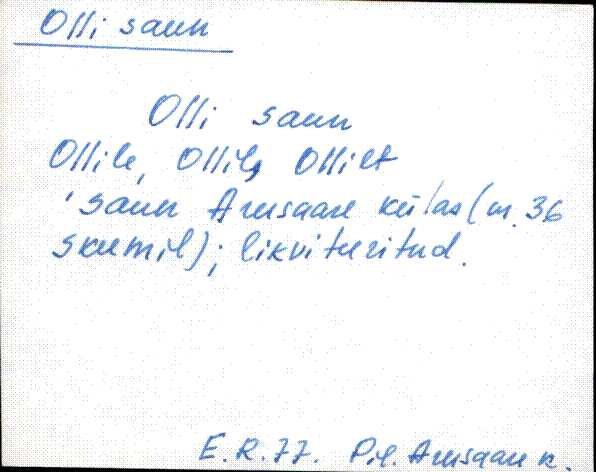 Olli saun
Olli saun
Ollile, Ollil, Ollilt
'saun Arusaare külas (nr. 36
skeemil); likvideeritud.
E.R.77. Pil. Arusaare k.